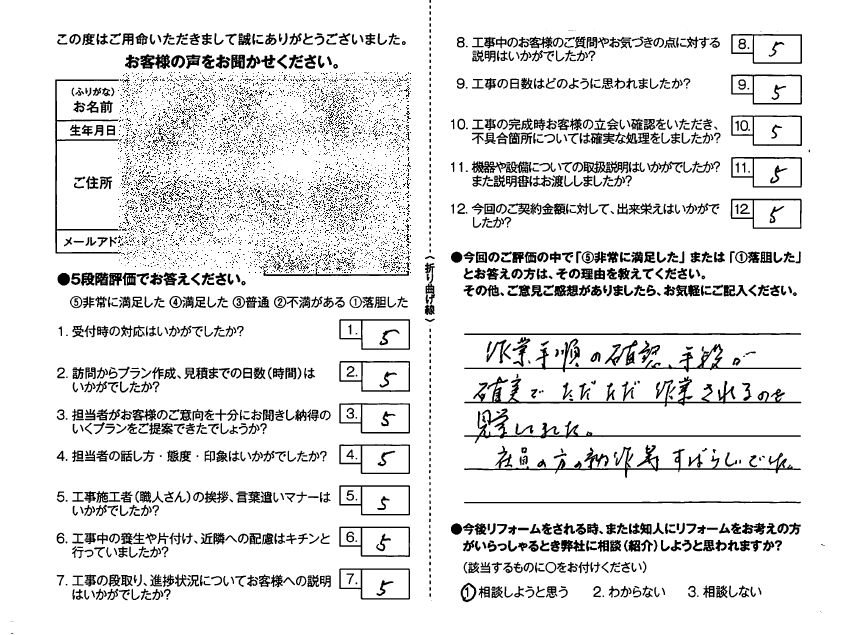 この度はご用命いただきまして誠にありがとうございました。
お客様の声をお聞かせください。
(ふりがな)
お名前
生年月日
ご住所
メールアド
●5段階評価でお答えください。
⑤非常に満足した ④満足した ③普通 ②不満がある ①落胆した
1. 受付時の対応はいかがでしたか? 1. 5
2. 訪問からプラン作成、見積までの日数(時間)は
いかがでしたか? 2. 5
3. 担当者がお客様のご意向を十分にお聞きし納得の
いくプランをご提案できたでしょうか? 3. 5
4. 担当者の話し方・態度・印象はいかがでしたか? 4. 5
5. 工事施工者(職人さん)の挨拶、言葉遣いマナーは
いかがでしたか? 5. 5
6. 工事中の養生や片付け、近隣への配慮はキチンと
行っていましたか? 6. 5
7. 工事の段取り、進捗状況についてお客様への説明
はいかがでしたか? 7. 5
(折り曲げ線)
8. 工事中のお客様のご質問やお気づきの点に対する
説明はいかがでしたか? 8. 5
9. 工事の日数はどのように思われましたか? 9. 5
10. 工事の完成時お客様の立会い確認をいただき、
不具合箇所については確実な処理をしましたか? 10. 5
11. 機器や設備についての取扱説明はいかがでしたか?
また説明書はお渡ししましたか? 11. 5
12. 今回のご契約金額に対して、出来栄えはいかがで
したか? 12. 5
●今回のご評価の中で「⑤非常に満足した」または「①落胆した」
とお答えの方は、その理由を教えてください。
その他、ご意見ご感想がありましたら、お気軽にご記入ください。
作業手順の確認、手段が
確実でただただ作業されるのを
見学してました。
社員の方の すばらしいでした。
●今後リフォームをされる時、または知人にリフォームをお考えの方
がいらっしゃるとき弊社に相談(紹介)しようと思われますか?
(該当するものに○をお付けください)
①相談しようと思う 2. わからない 3. 相談しない